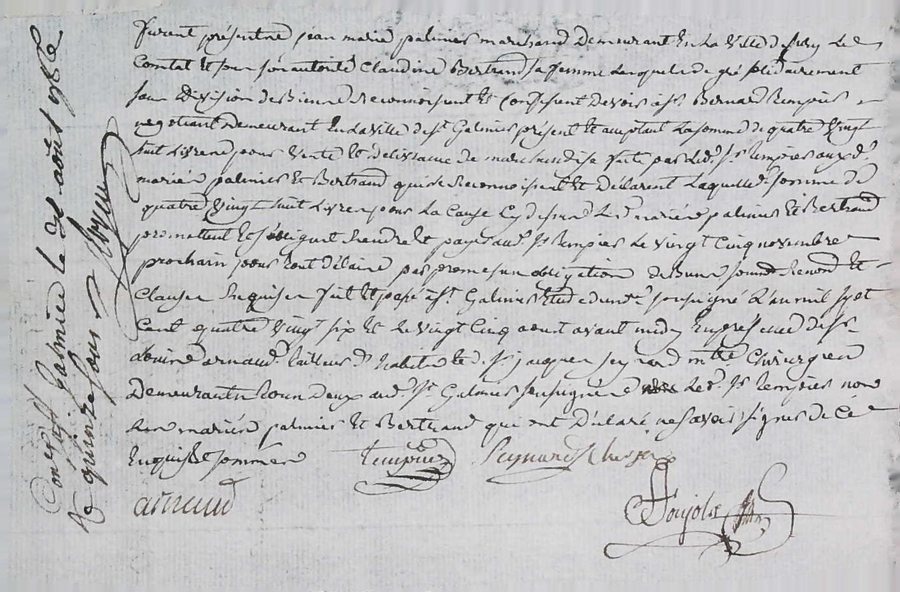 furent présents jean marie palmier marchand demeurant en la ville de sury le
Comtal et sous son autorité Claudine Bertrand sa femme lesquels de gré solidairement
sans Division de Biens Reconnoissent et Confessent devoir à sr Bernard Tempier
negotiant demeurant en la ville de st Galmier présent et acceptant la somme de quatre Vingt
huit Livres pour Vente et délivrance de marchandise faite par led. sr Tempier aux d.
mariés palmier et Bertrand qui le Reconnoissent et déclarent Laquelle somme de
quatre Vingt huit Livres pour La Cause Cy dessus Les d. mariés palmier et Bertrand
promettent et s'obligent Rendre et payer aud. sr Tempier Le Vingt Cinq novembre
prochain pour tout délaie par promesses obligation de Biens Renond et
Clauses Requises fait et passé à st Galmier Etude du not. soussigné L'an mil sept
Cent quatre Vingt six et Le Vingt Cinq aout avant midy En présence de sr
arnaud Tailleur d'habits et de sr jacques seynard mtre Chirurgien
Demeurants tous deux aud. st Galmier soussignés Led. sr Tempier non
Les mariés palmier et Bertrand qui ont Déclaré ne savoir signer de Ce
Enquis et sommés
Tempier
Seynard
arnaud
Soujolet
Con. à st galmier le 28 août 1786
R quinze sous